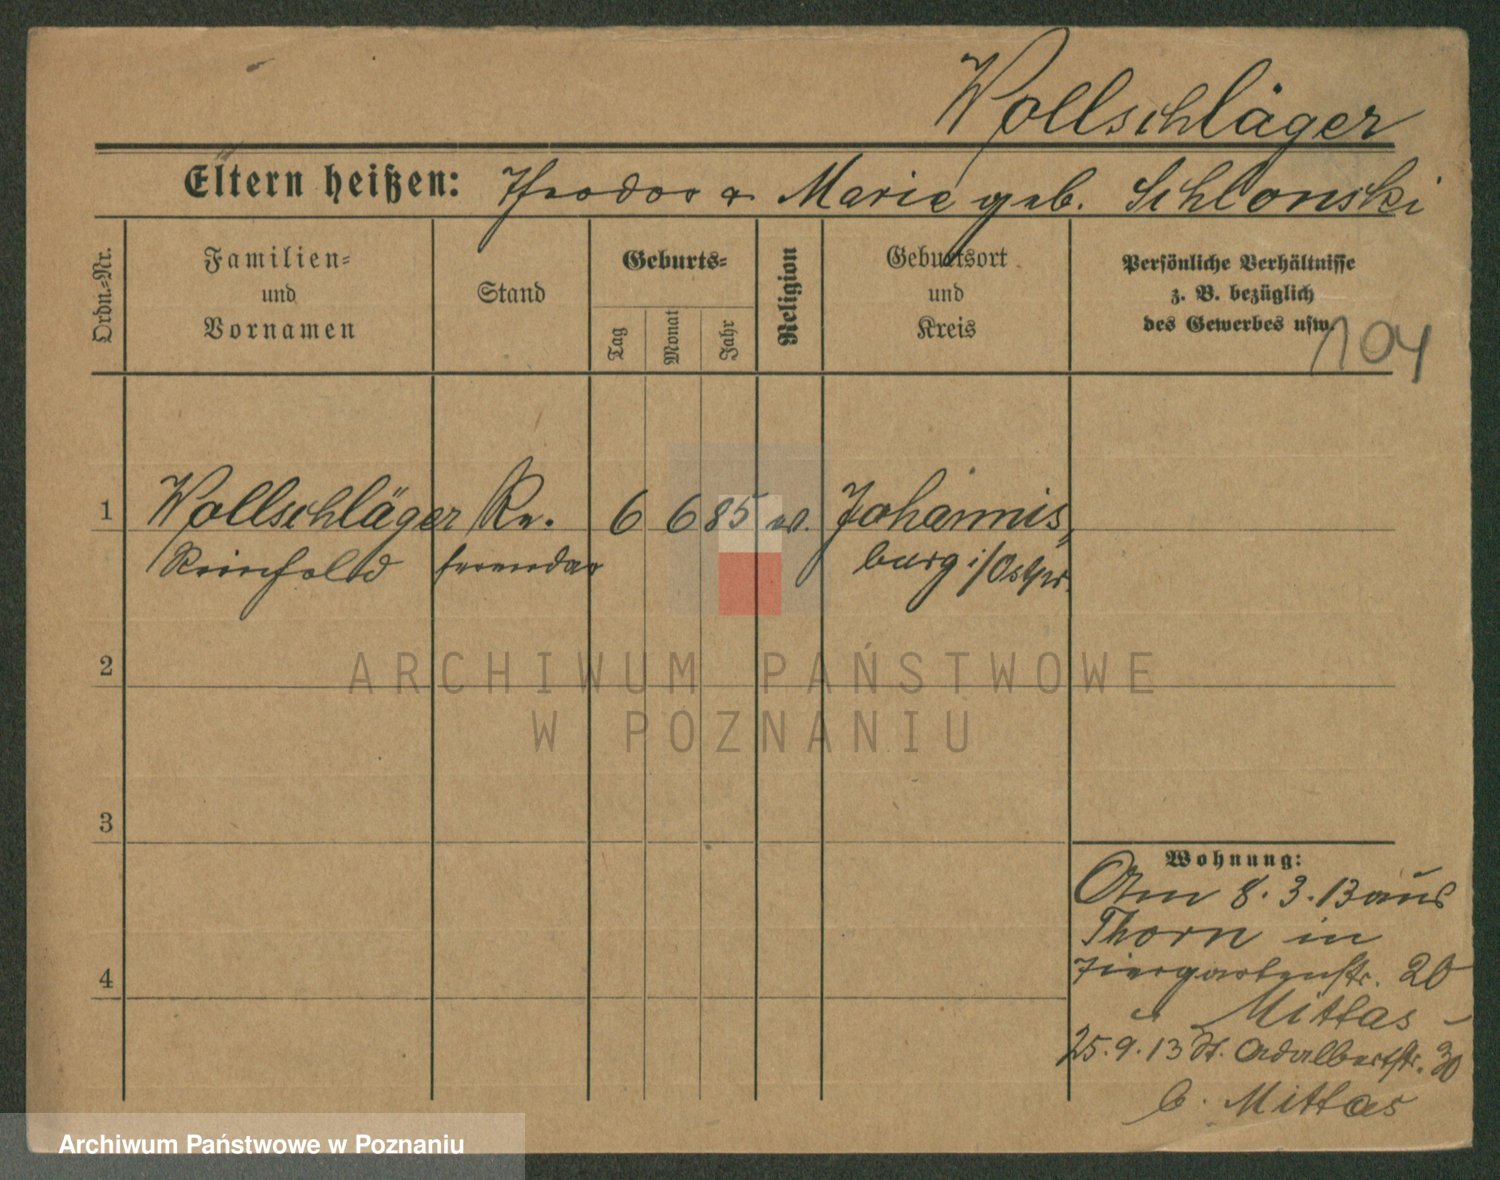 Wollschläger
Eltern heißen: Theodor u. Marie geb. Schlonski
Ordn.-Nr.
Familien-
und
Vornamen
Stand
Geburts-
Tag
Monat
Jahr
Religion
Geburtsort
und
Kreis
Persönliche Verhältnisse
z. B. bezüglich
des Gewerbes usw.
104
1 Wollschläger Re- 6 6 85 ev. Johannis-
Reinhold ferendar burg i/Ostpr.
2
3
4
Wohnung:
Am 8.3.13 aus
Thorn in
Tiergartenstr. 20
Mittas
25.9.13 St. Adalbertstr. 30
b. Mittas
ARCHIWUM PAŃSTWOWE
W POZNANIU
Archiwum Państwowe w Poznaniu